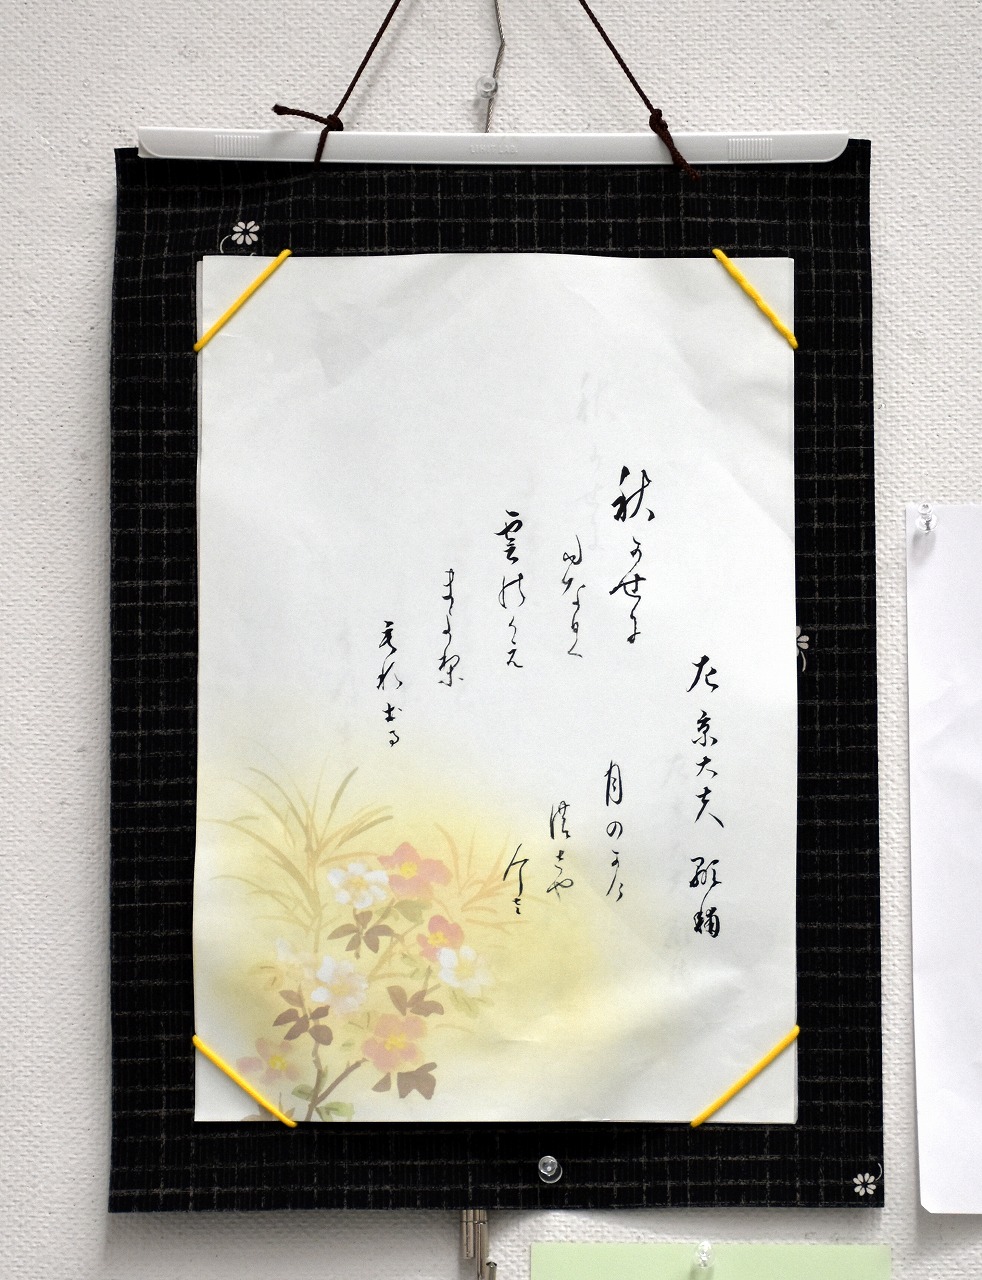 左京大夫 顕輔
秋かせに
たなひく
雲のたえ
まより
もれ出る
月のかけ
のさや
けさ